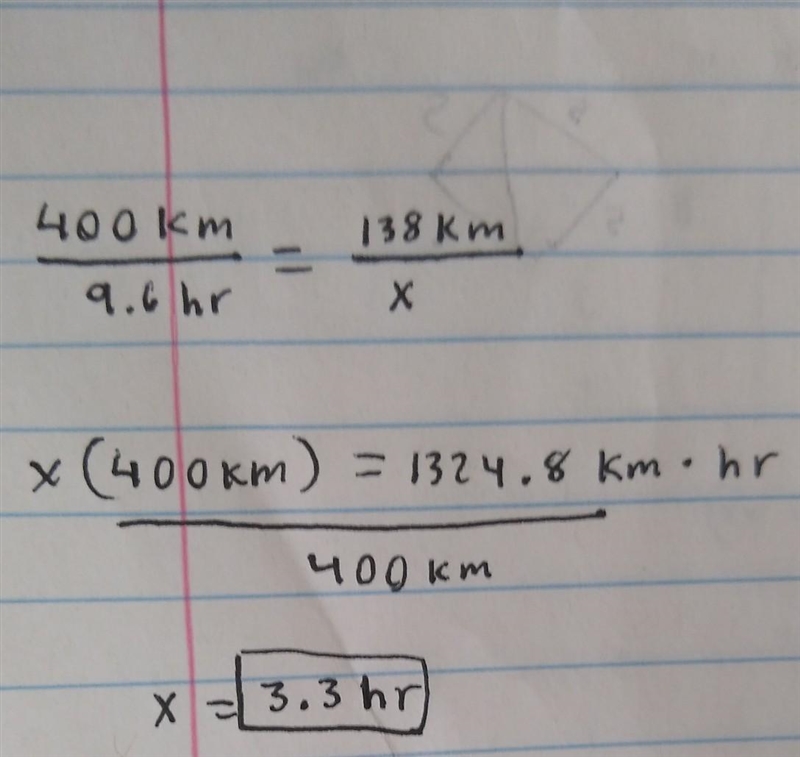 400 km = 138 km
9.6 hr x
x (400 km) = 1324.8 km • hr
400 km
x = 3.3 hr